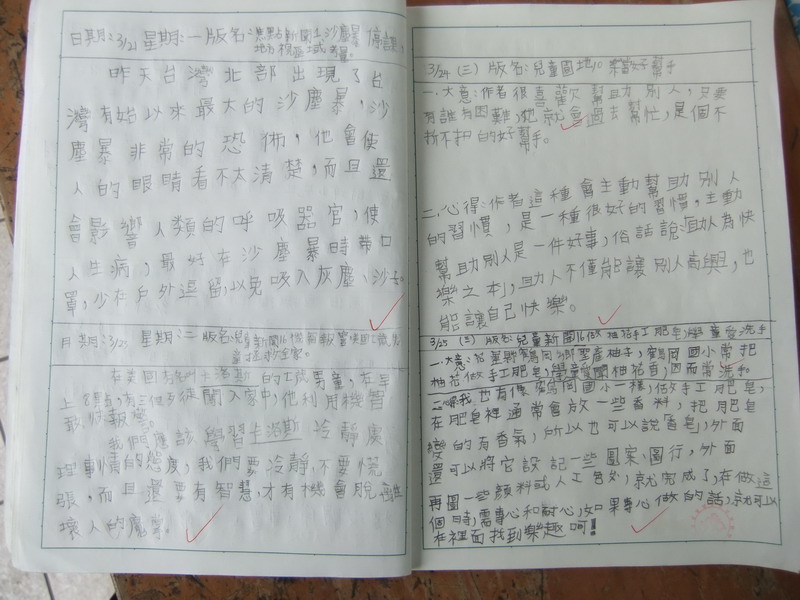 日期:3/21 星期:一 版名:焦點新聞1沙塵暴
地方視區域
昨天台灣北部出現了台
灣有始以來最大的沙塵暴,沙
塵暴非常的恐怖,他會使
人的眼睛看不太清楚,而且還
會影響人類的呼吸器官,使
人生病,最好在沙塵暴時帶口
罩,少在戶外逗留,以免吸入灰塵、沙子。
日期:3/23 星期:二 版名:兒童新聞16機智報警
拯救全家。
在美國有名叫卡洛斯的七歲男童,在早
上 有三個歹徒闖入家中,他利用機智
我們應該學習卡洛斯冷靜處
理事情的態度,我們要冷靜,不要慌
張,而且還要有智慧,才有機會脫離
壞人的魔掌。
3/24 (三) 版名:兒童園地10 幫手
一.大意:作者很喜歡幫助別人,只要
有誰有困難,她就會過去幫忙,是個不
折不扣的好幫手。
二.心得:作者這種會主動幫助別人
的習慣,是一種很好的習慣,主動
幫助別人是一件好事,俗話說:助人為快
樂之本,助人不僅能讓別人高興,也
能讓自己快樂。
3/25 (三) 版名:兒童新聞16做柚花手工肥皂,學童愛洗手
一.大意:花蓮縣鶴岡鄉盛產柚子,鶴岡國小常把
柚花做手工肥皂,學童愛聞柚花香,因而常洗手。
二.心得我也有像鶴岡國小一樣,做手工肥皂,
在肥皂裡通常會放一些香料,把肥皂
變的有香氣,所以也可以說「香皂」,外面
還可以將它設記一些圖案、圖行,外面
再圖一些顏料或人工 ,就完成了,在做這
個時,需專心和耐心,如果專心做的話,就可以
在裡面找到樂趣呵!